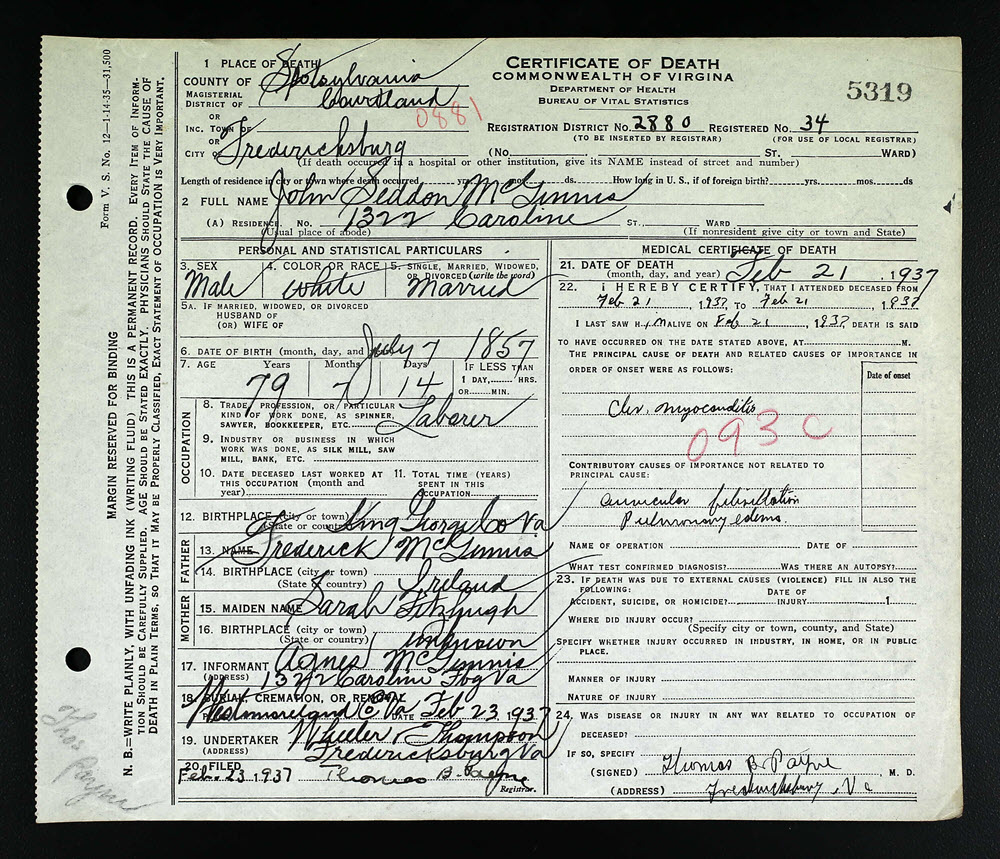 Form V. S. No. 12—1-14-35—31,500
MARGIN RESERVED FOR BINDING
N. B.—WRITE PLAINLY, WITH UNFADING INK (WRITING FLUID) THIS IS A PERMANENT RECORD. EVERY ITEM OF INFORM-
TION SHOULD BE CAREFULLY SUPPLIED. AGE SHOULD BE STATED EXACTLY. PHYSICIANS SHOULD STATE THE CAUSE OF
DEATH IN PLAIN TERMS, SO THAT IT MAY BE PROPERLY CLASSIFIED. EXACT STATEMENT OF OCCUPATION IS VERY IMPORTANT.
Thos Payne
1 PLACE OF DEATH
COUNTY OF Spotsylvania
MAGISTERIAL
DISTRICT OF Courtland
OR 0881
INC. TOWN OF
OR
CITY OF Fredericksburg
CERTIFICATE OF DEATH
COMMONWEALTH OF VIRGINIA
DEPARTMENT OF HEALTH
BUREAU OF VITAL STATISTICS
5319
REGISTRATION DISTRICT NO. 2880 REGISTERED NO. 34
(TO BE INSERTED BY REGISTRAR) (FOR USE OF LOCAL REGISTRAR)
(No. ST. WARD)
(If death occurred in a hospital or other institution, give its NAME instead of street and number)
Length of residence in city or town where death occurred yrs. mos. ds. How long in U. S., if of foreign birth? yrs. mos. ds
2 FULL NAME John Seddon McGinnis
(A) RESIDENCE. No. 1322 Caroline ST., WARD
(Usual place of abode) (If nonresident give city or town and State)
PERSONAL AND STATISTICAL PARTICULARS
3. SEX Male
4. COLOR OR RACE White
5. SINGLE, MARRIED, WIDOWED, OR DIVORCED (write the word) Married
5A. IF MARRIED, WIDOWED, OR DIVORCED
HUSBAND OF
(OR) WIFE OF
6. DATE OF BIRTH (month, day, and July 7 1857
7. AGE Years Months Days IF LESS THAN
79 7 14 1 DAY, HRS.
OR MIN.
OCCUPATION
8. TRADE, PROFESSION, OR PARTICULAR
KIND OF WORK DONE, AS SPINNER,
SAWYER, BOOKKEEPER, ETC. Laborer
9. INDUSTRY OR BUSINESS IN WHICH
WORK WAS DONE, AS SILK MILL, SAW
MILL, BANK, ETC.
10. DATE DECEASED LAST WORKED AT
THIS OCCUPATION (month and
year)
11. TOTAL TIME (YEARS)
SPENT IN THIS
OCCUPATION
12. BIRTHPLACE (city or town)
(State or country) King George Co Va
FATHER
13. NAME Frederick McGinnis
14. BIRTHPLACE (city or town)
(State or country) Ireland
MOTHER
15. MAIDEN NAME Sarah Fitzhugh
16. BIRTHPLACE (city or town)
(State or country) unknown
17. INFORMANT Agnes McGinnis
(ADDRESS) 1322 Caroline Fbg Va
18. BURIAL, CREMATION, OR REMOVAL
Westmoreland Co Va DATE Feb 23 1937
19. UNDERTAKER Wheeler & Thompson
(ADDRESS) Fredericksburg Va
20. FILED
Feb. 23, 1937 Thomas B. Payne
Registrar.
MEDICAL CERTIFICATE OF DEATH
21. DATE OF DEATH
(month, day, and year) Feb 21, 1937
22. I HEREBY CERTIFY, THAT I ATTENDED DECEASED FROM
Feb 21, 1937 TO Feb 21, 1937
I LAST SAW HIM ALIVE ON Feb 21, 1937 DEATH IS SAID
TO HAVE OCCURRED ON THE DATE STATED ABOVE, AT M.
THE PRINCIPAL CAUSE OF DEATH AND RELATED CAUSES OF IMPORTANCE IN
ORDER OF ONSET WERE AS FOLLOWS:
Date of onset
Chr. myocarditis
093 C
CONTRIBUTORY CAUSES OF IMPORTANCE NOT RELATED TO
PRINCIPAL CAUSE:
auricular fibrillation
Pulmonary edema.
NAME OF OPERATION DATE OF
WHAT TEST CONFIRMED DIAGNOSIS? WAS THERE AN AUTOPSY?
23. IF DEATH WAS DUE TO EXTERNAL CAUSES (VIOLENCE) FILL IN ALSO THE
FOLLOWING:
ACCIDENT, SUICIDE, OR HOMICIDE? DATE OF INJURY 1
WHERE DID INJURY OCCUR?
(Specify city or town, county, and State)
SPECIFY WHETHER INJURY OCCURRED IN INDUSTRY, IN HOME, OR IN PUBLIC
PLACE.
MANNER OF INJURY
NATURE OF INJURY
24. WAS DISEASE OR INJURY IN ANY WAY RELATED TO OCCUPATION OF
DECEASED?
IF SO, SPECIFY
(SIGNED) Thomas B. Payne, M. D.
(ADDRESS) Fredericksburg, Va